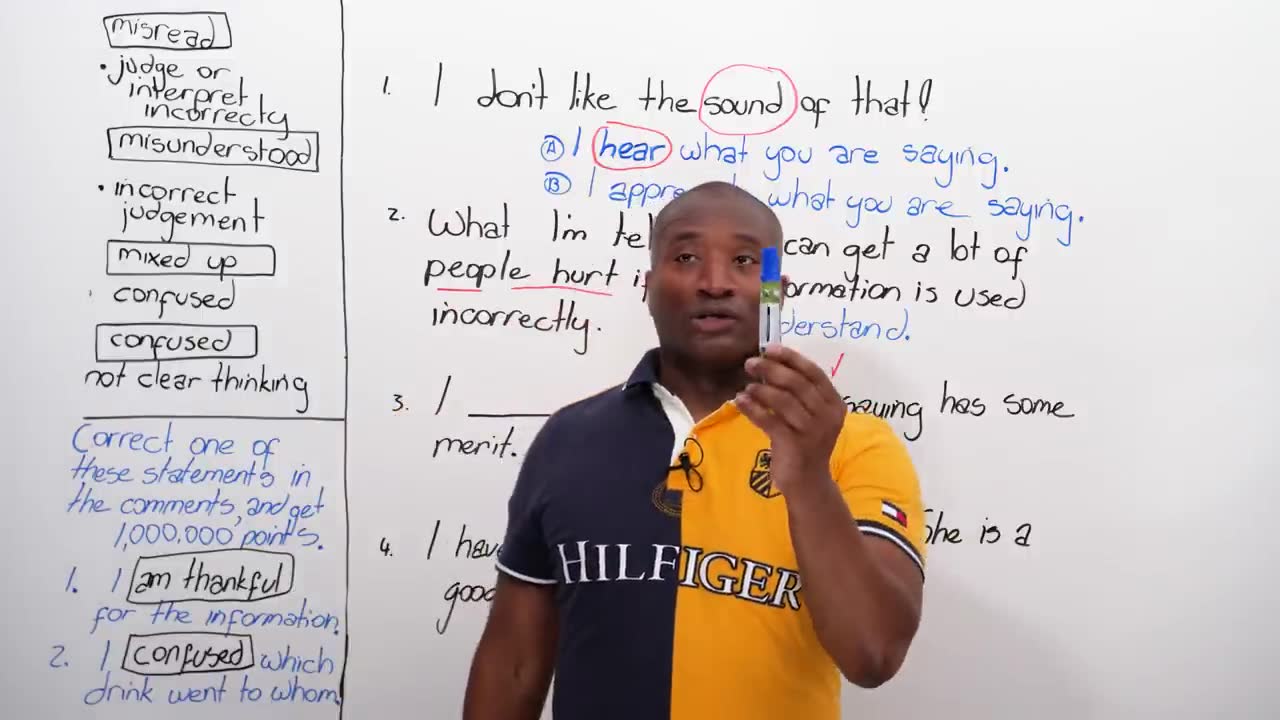 misread
• judge or
interpret
incorrecty
misunderstood
• incorrect
judgement
mixed up
confused
confused
not clear thinking
Correct one of
these statements in
the comments, and get
1,000,000 points.
1. I am thankful
for the information.
2. I confused which
drink went to whom.
1. I don't like the sound of that!
Ⓐ I hear what you are saying.
Ⓑ I what you are saying.
2. What I'm can get a lot of
people hurt is used
incorrectly.
3. I ____ saying has some
merit.
4. I She is a
HILFIGER